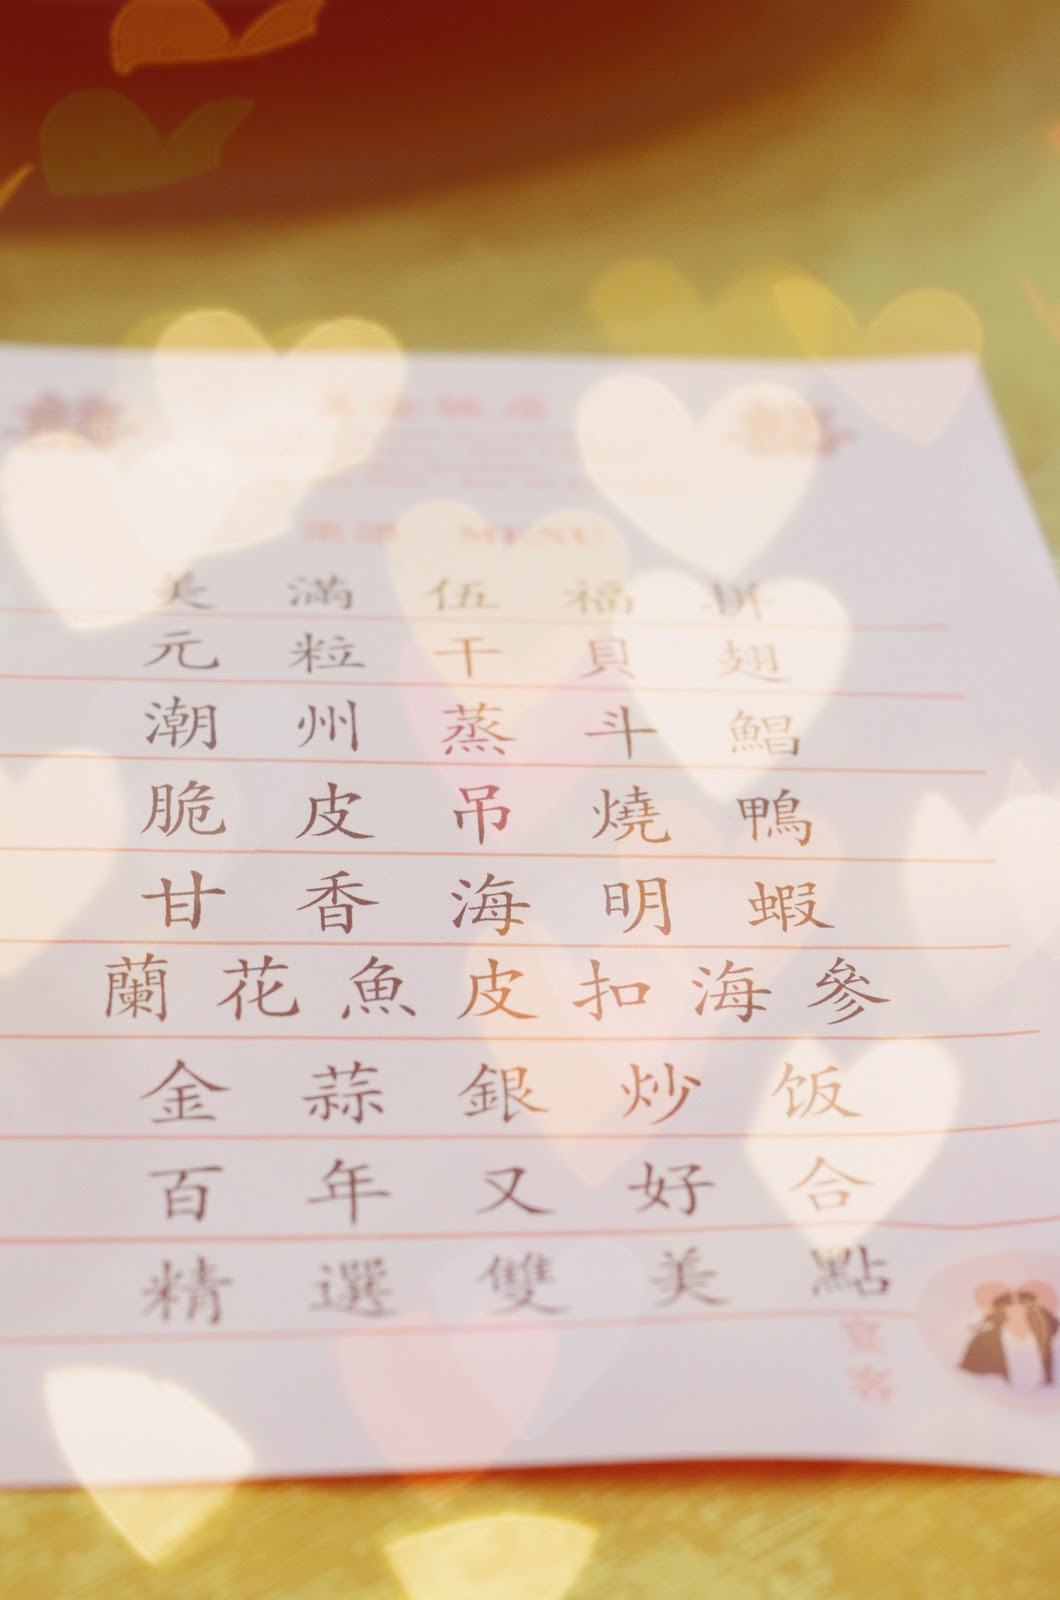 菜譜 MENU
美滿伍福拼
元粒干貝翅
潮州蒸斗鯧
脆皮吊燒鴨
甘香海明蝦
蘭花魚皮扣海參
金蒜銀炒饭
百年又好合
精選雙美點